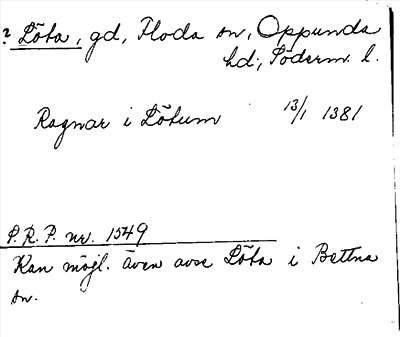 ? Löta, gd, Floda sn, Oppunda
hd, Söderm. l.
Ragnar i Lötum 13/1 1381
P.R.P. nr. 1549
Kan möjl. även avse Löta i Bettna
sn.